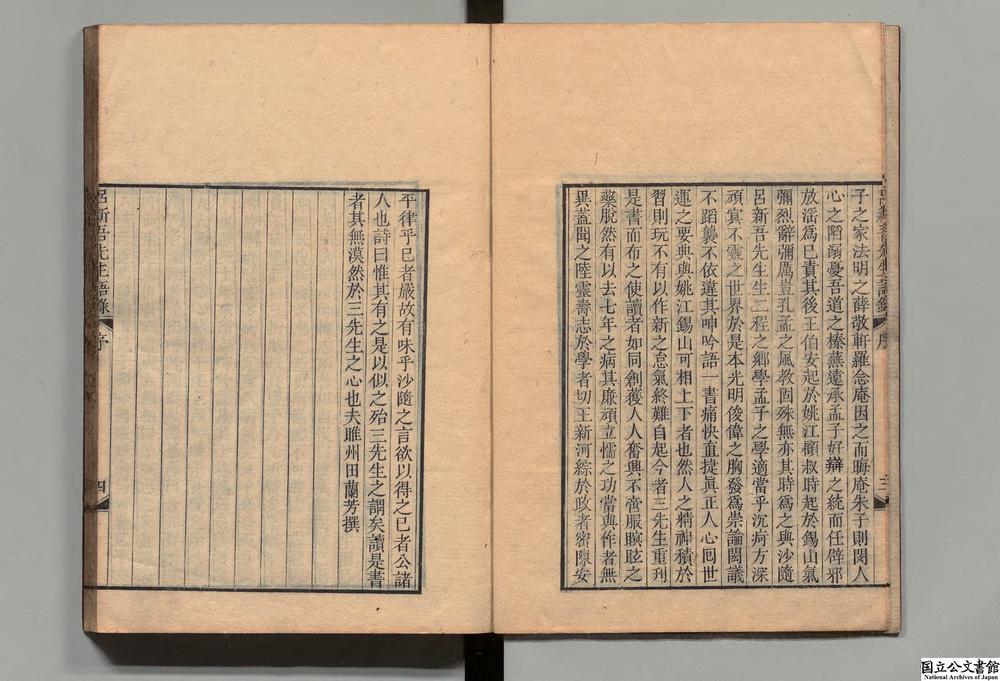 子之家法明之薛敬軒羅念庵因之而晦庵朱子則閔人
心之陷溺憂吾道之榛蕪遠承孟子好辯之統而任闢邪
放淫爲已責其後王伯安起於姚江顧叔時起於錫山氣
彌烈辭彌厲豈孔孟之風敎固殊無亦其時爲之與沙隨
呂新吾先生生二程之鄉學孟子之學適當乎沉疴方深
頑寞不靈之世界於是本光明俊偉之胸發爲崇論閎議
不蹈襲不依違其呻吟語一書痛快直捷眞正人心囘世
運之要典與姚江錫山可相上下者也然人之精神積於
習則玩不有以作新之怠氣終難自起今者三先生重刋
是書而布之使讀者如同創獲人人奮興不啻服瞑眩之
藥脫然有以去七年之病其廉頑立懦之功當與作者無
異蓋聞之陸靈壽志於學者切王新河綜於政者密陳安
平律乎已者嚴故有味乎沙隨之言欲以得之已者公諸
人也詩曰惟其有之是以似之殆三先生之謂矣讀是書
者其無漠然於三先生之心也夫睢州田蘭芳撰
呂新吾先生語錄
序
四
序
三
国立公文書館
National Archives of Japan